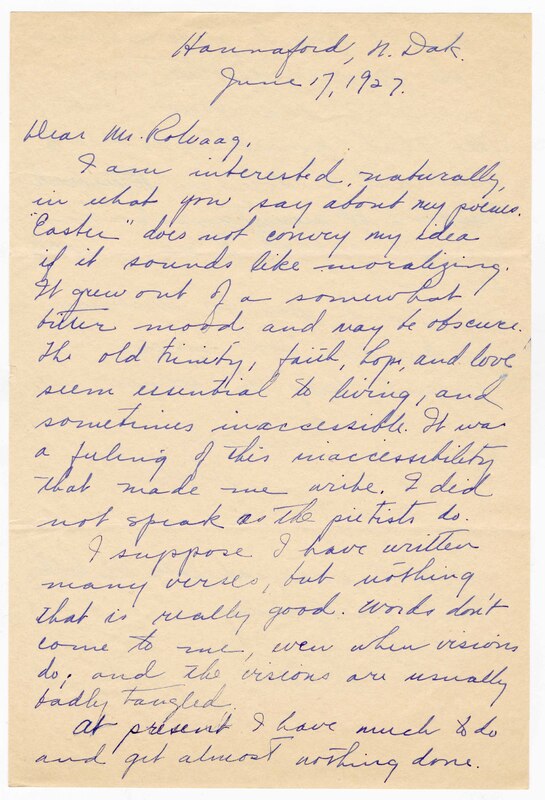 Hannaford, N. Dak.
June 17, 1927.
Dear Mr. Rolvaag,
I am interested, naturally,
in what you say about my poems.
"Easter" does not convey my idea
if it sounds like moralizing.
It grew out of a somewhat
bitter mood and may be obscure.
The old trinity, faith, hope, and love
seem essential to living, and
sometimes inaccessible. It was
a feeling of this inaccessibility
that made me write. I did
not speak as the pietists do.
I suppose I have written
many verses, but nothing
that is really good. Words don't
come to me, even when visions
do; and the visions are usually
badly tangled.
At present I have much to do
and get almost nothing done.